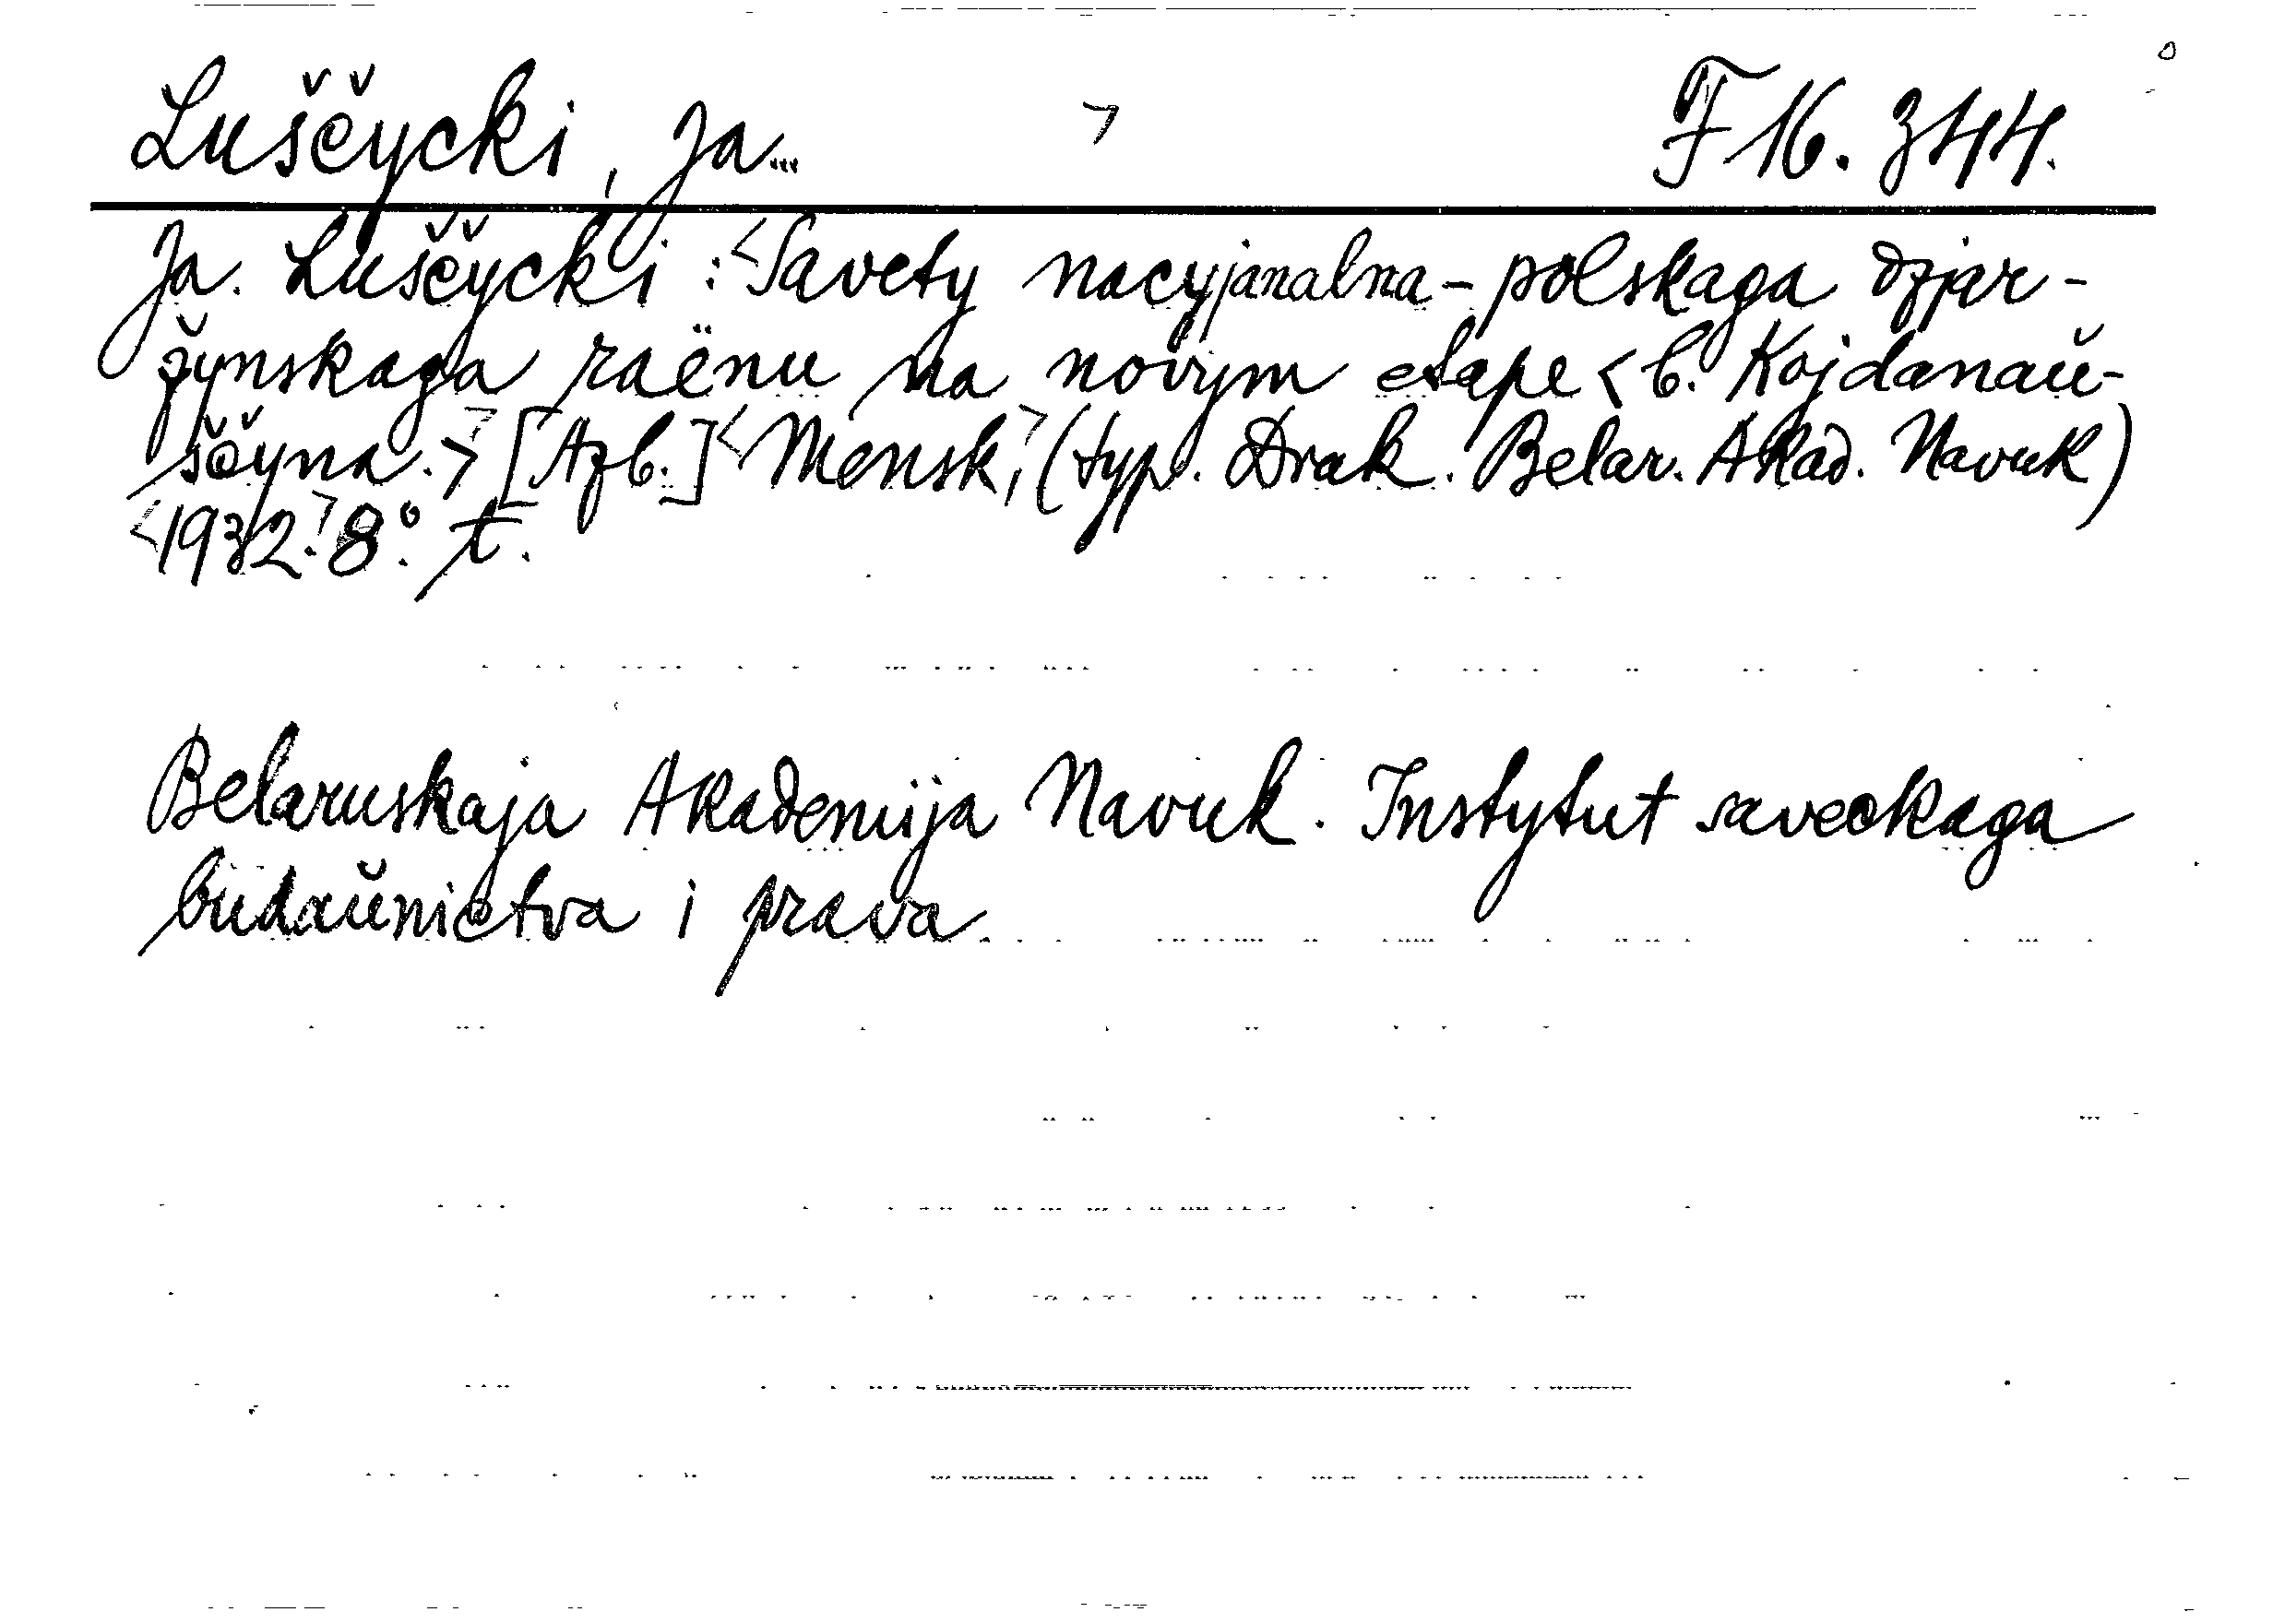 Luščycki, Ja... F 16. 344.
Ja. Luščycki: <Savety nacyjanalna-polskaga dzjar-
žynskaga raënu na novym etape <b. Kojdanaŭ-
ščyna.> [Azb.] <Mensk,> (typ. Druk. Belar. Akad. Navuk)
<1932.> 8°. t.
Belaruskaja Akademija Navuk. Instytut saveckaga
budaŭnictva i prava.